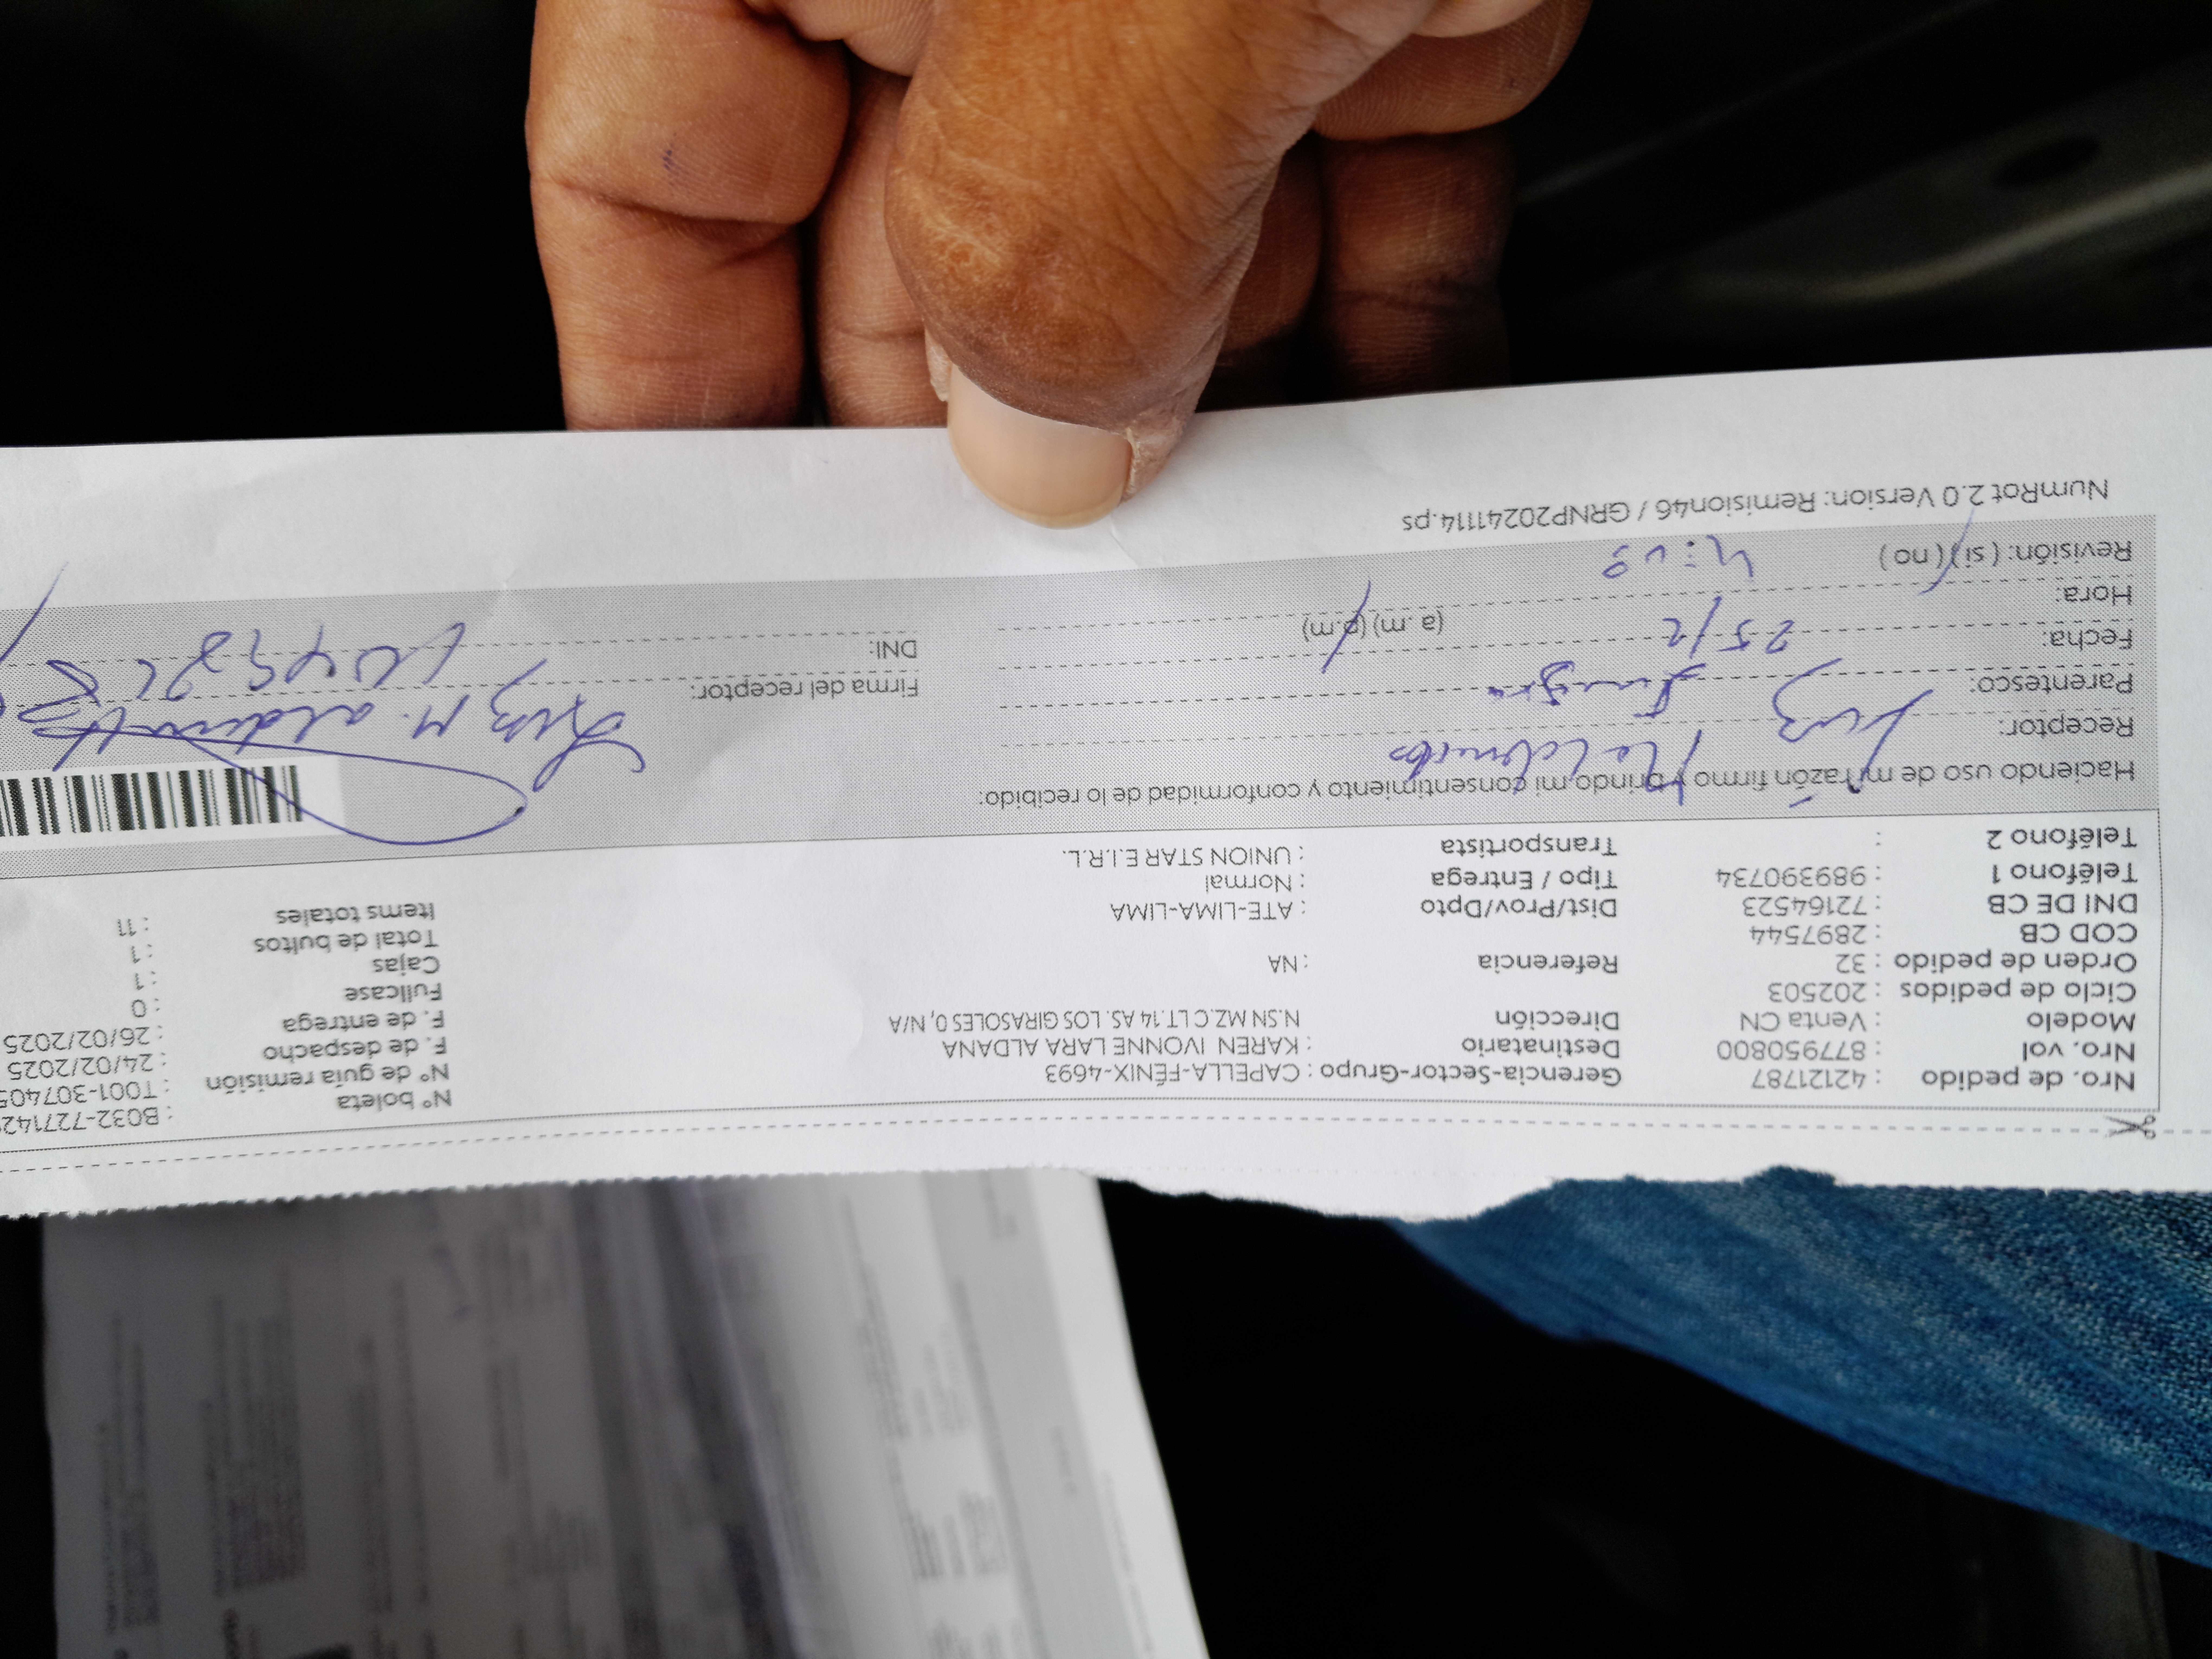 Nro. de pedido : 42121787
Nro. vol : 877950800
Modelo : Venta CN
Ciclo de pedidos : 202503
Orden de pedido : 32
COD CB : 2897544
DNI DE CB : 72164523
Teléfono 1 : 989390734
Teléfono 2 :
Gerencia-Sector-Grupo : CAPELLA-FÉNIX-4693
Destinatario : KAREN IVONNE LARA ALDANA
Dirección N.SN MZ.C LT.14 AS. LOS GIRASOLES 0, N/A
Referencia : NA
Dist/Prov/Dpto : ATE-LIMA-LIMA
Tipo / Entrega : Normal
Transportista : UNION STAR E.I.R.L.
Nº boleta : B032-72714
Nº de guía remisión : T001-30740
F. de despacho : 24/02/2025
F. de entrega : 26/02/2025
Fullcase : 0
Cajas : 1
Total de bultos : 1
Items totales : 11
Haciendo uso de mi razón firmo y brindo mi consentimiento y conformidad de lo recibido:
Receptor: Luz
Parentesco: Suegra
Fecha: 25/2
Hora: (a. m) (p.m)
Revisión: ( si ) ( no )
Firma del receptor: Luz M.
DNI:
NumRot 2.0 Version: Remision46 / GRNP20241114.ps